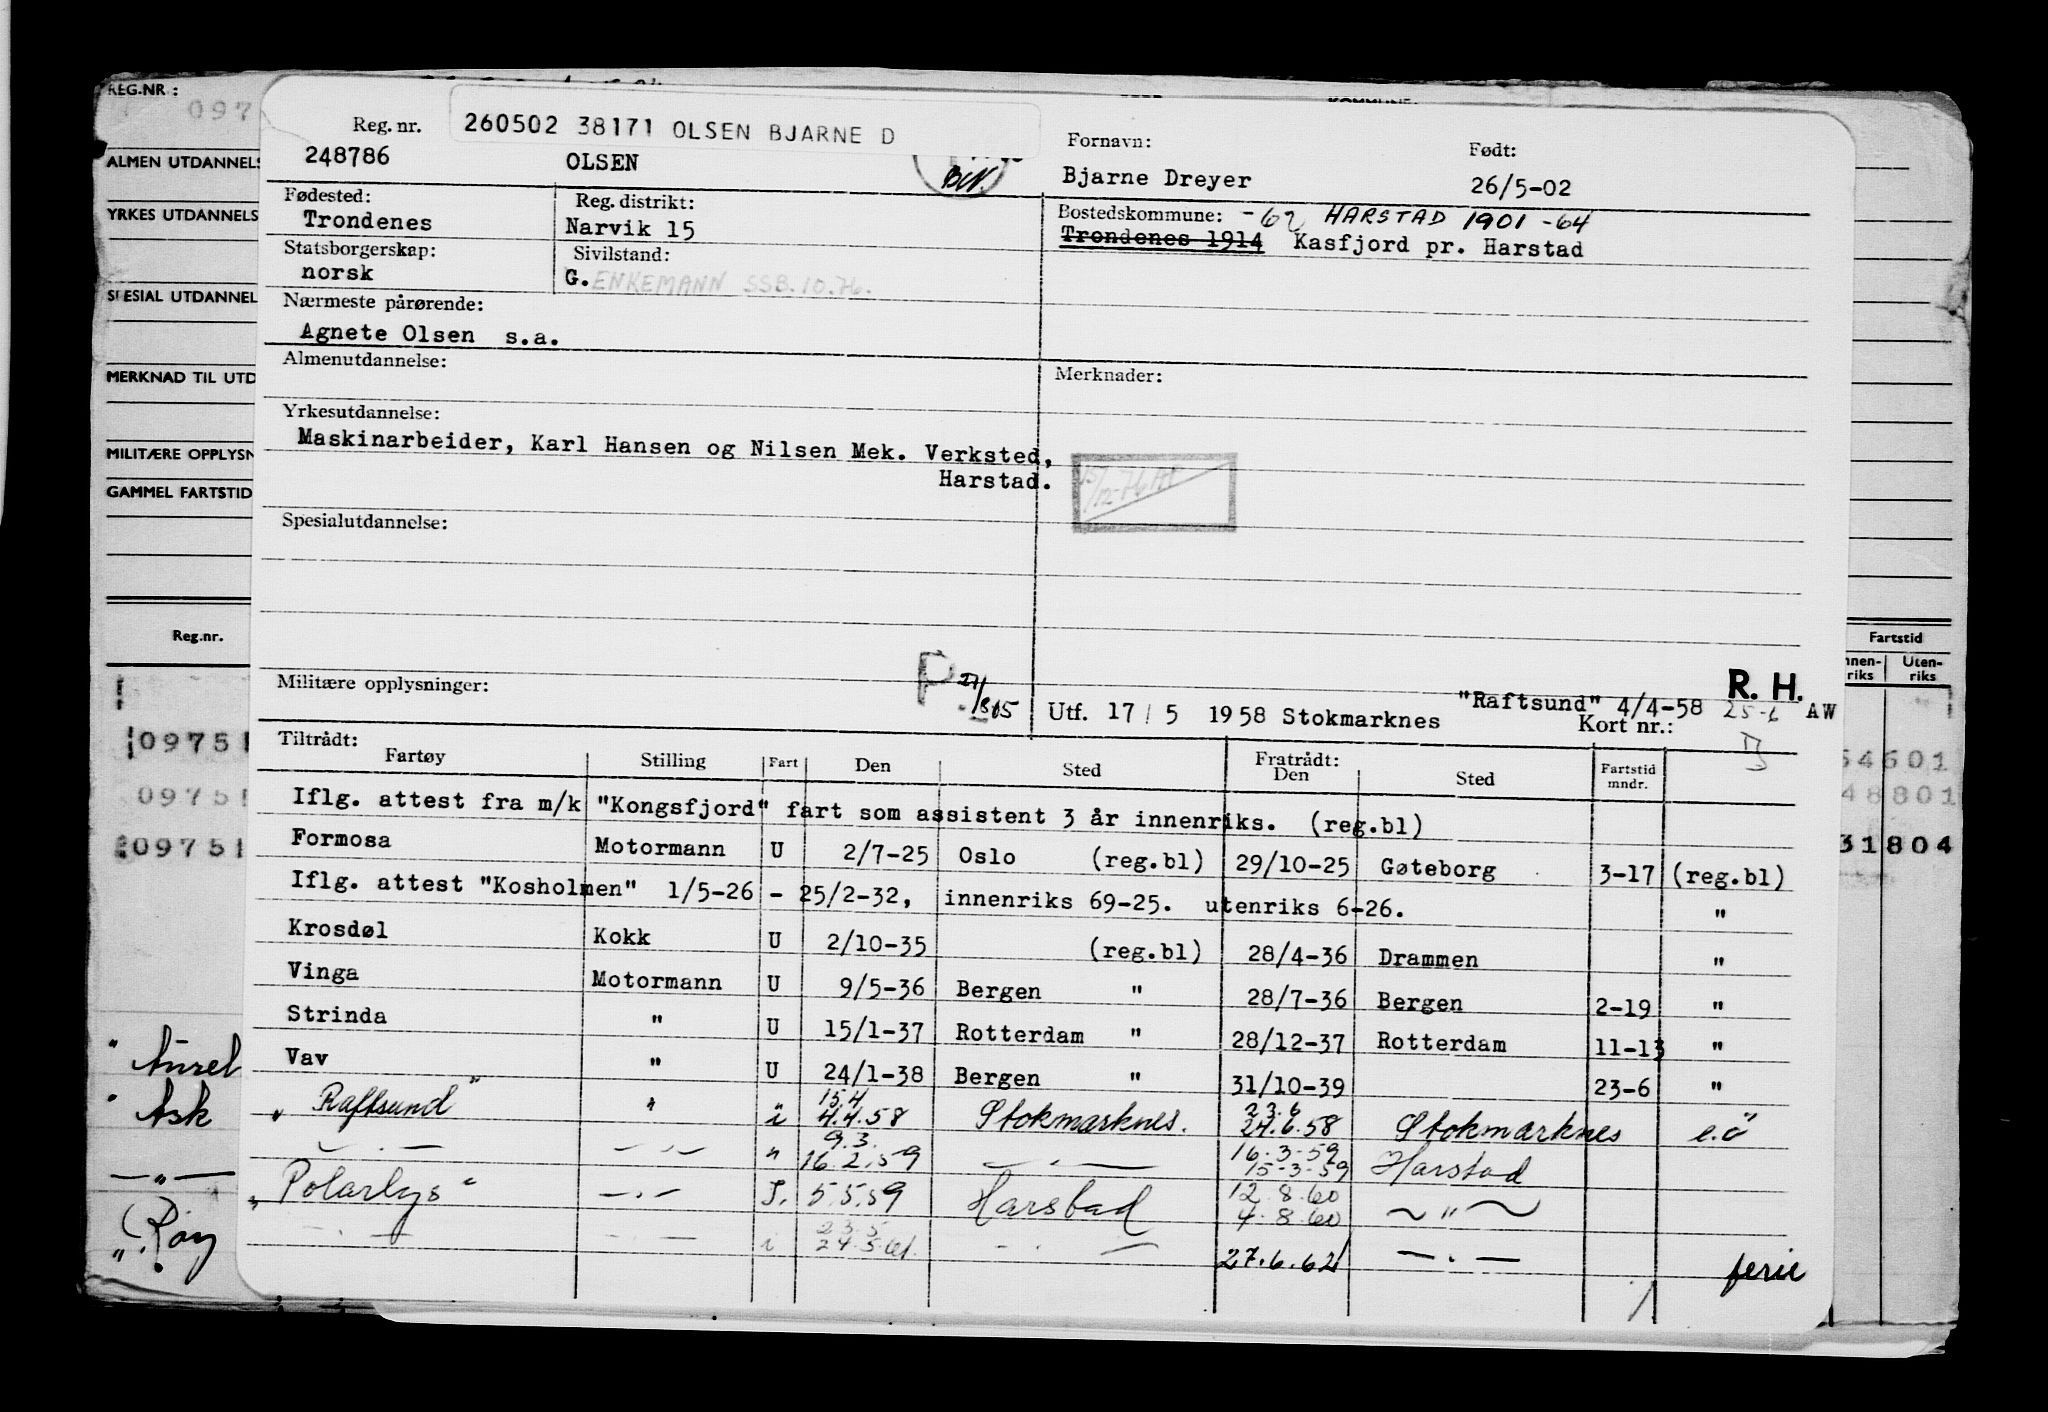 REG.NR:
097
ALMEN UTDANNELS
YRKES UTDANNELS
SPESIAL UTDANNEL
MERKNAD TIL UTD
MILITÆRE OPPLYSN
GAMMEL FARTSTID
Reg.nr.
09751
09751
09751
Ask
Fartstid
Uten-
riks riks
54601
48801
31804
Reg. nr. 260502 38171 OLSEN BJARNE D Fornavn: Født:
248786 OLSEN Bjarne Dreyer 26/5-02
Fødested: Reg. distrikt: Bostedskommune: HARSTAD 1901 -64
Trondenes Narvik 15 Trondenes 1914 Kasfjord pr. Harstad
Statsborgerskap: Sivilstand:
norsk G. ENKEMANN SSB.10.76.
Nærmeste pårørende:
Agnete Olsen s.a.
Almenutdannelse: Merknader:
Yrkesutdannelse:
Maskinarbeider, Karl Hansen og Nilsen Mek. Verksted,
Harstad.
Spesialutdannelse:
Militære opplysninger: P "Raftsund" 4/4-58 R. H.
Utf. 17/5 1958 Stokmarknes Kort nr.: 25-6 AW
Tiltrådt: Fratrådt:
Fartøy Stilling Fart Den Sted Den Sted Fartstid mndr.
Iflg. attest fra m/k "Kongsfjord" fart som assistent 3 år innenriks. (reg.bl)
Formosa Motormann U 2/7-25 Oslo (reg.bl) 29/10-25 Gøteborg 3-17 (reg.bl)
Iflg. attest "Kosholmen" 1/5-26 - 25/2-32, innenriks 69-25. utenriks 6-26. "
Krosdøl Kokk U 2/10-35 (reg.bl) 28/4-36 Drammen "
Vinga Motormann U 9/5-36 Bergen " 28/7-36 Bergen 2-19 "
Strinda " U 15/1-37 Rotterdam " 28/12-37 Rotterdam 11-13 "
Vav " U 24/1-38 Bergen " 31/10-39 23-6 "
15.4 23.6
" Raftsund " " i 4.4.58 Stokmarknes. 24.6.58 Stokmarknes e.o
9.3. 16.3.59
— " — — " — " 16.2.59 — " — 15-3-59 Harstad
12.8.60
" Polarlys " — " — 5.5.59 Harstad 4.8.60 — " —
23.5
— " — — " — i 24.5.61. — " — 27.6.62 — " — ferie